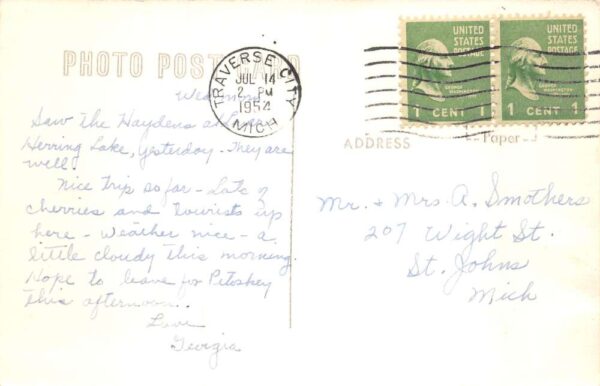 PHOTO POST CARD
TRAVERSE CITY
JUL 14
2 PM
1954
MICH
UNITED
STATES
POSTAGE
GEORGE
WASHINGTON
1 CENT 1
UNITED
STATES
POSTAGE
GEORGE
WASHINGTON
1 CENT 1
ADDRESS
Paper
Saw The Haydens at
Herring Lake, yesterday - They are
well.
Nice trip so far - Lots of
cherries and tourists up
here - Weather nice - a
little cloudy this morning
Hope to leave for Petoskey
this afternoon.
Love
Georgia
Mr. + Mrs A. Smothers
207 Wight St.
St. Johns
Mich